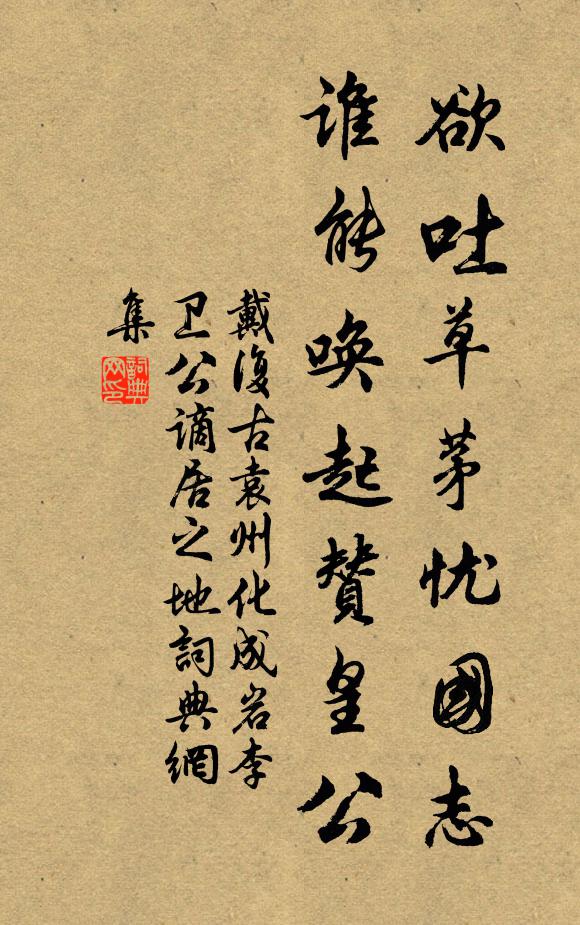 欲吐草茅忧國志
谁能唤起贊皇公
戴復古袁州化成岩李
卫公谪居之地詞典網
集
詞典网印